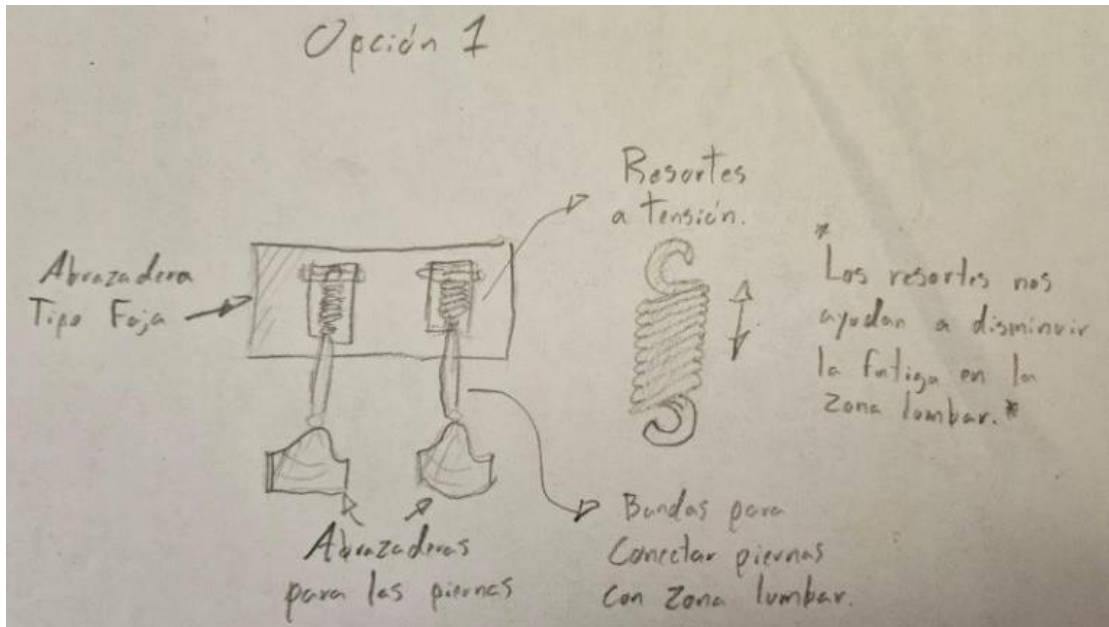 Opción 1
Resortes
a tensión.
Abrazadera
Tipo Faja
*Los resortes nos
ayudan a disminuir
la fatiga en la
zona lumbar.*
Abrazaderas
para las piernas
Bandas para
Conectar piernas
con zona lumbar.